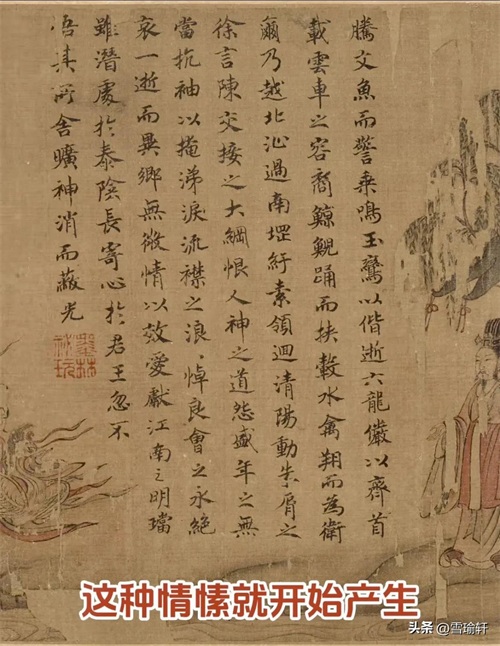 騰文魚而警乘鳴玉鸞以偕逝六龍儼以齊首
載雲車之容裔鯨鯢踊而挾轂水禽翔而為衛
爾乃越北沚過南堽紆素領迴清陽動朱脣之
徐言陳交接之大綱恨人神之道怨盛年之無
當抗袖以掩涕淚流襟之浪、悼良會之永絕
哀一逝而異鄉無微情以效愛獻江南之明璫
雖潛處於泰陰長寄心於君王忽不
悟其所舍曠神消而蔽光
墨林祕玩
这种情愫就开始产生
头条 @雪瑜轩